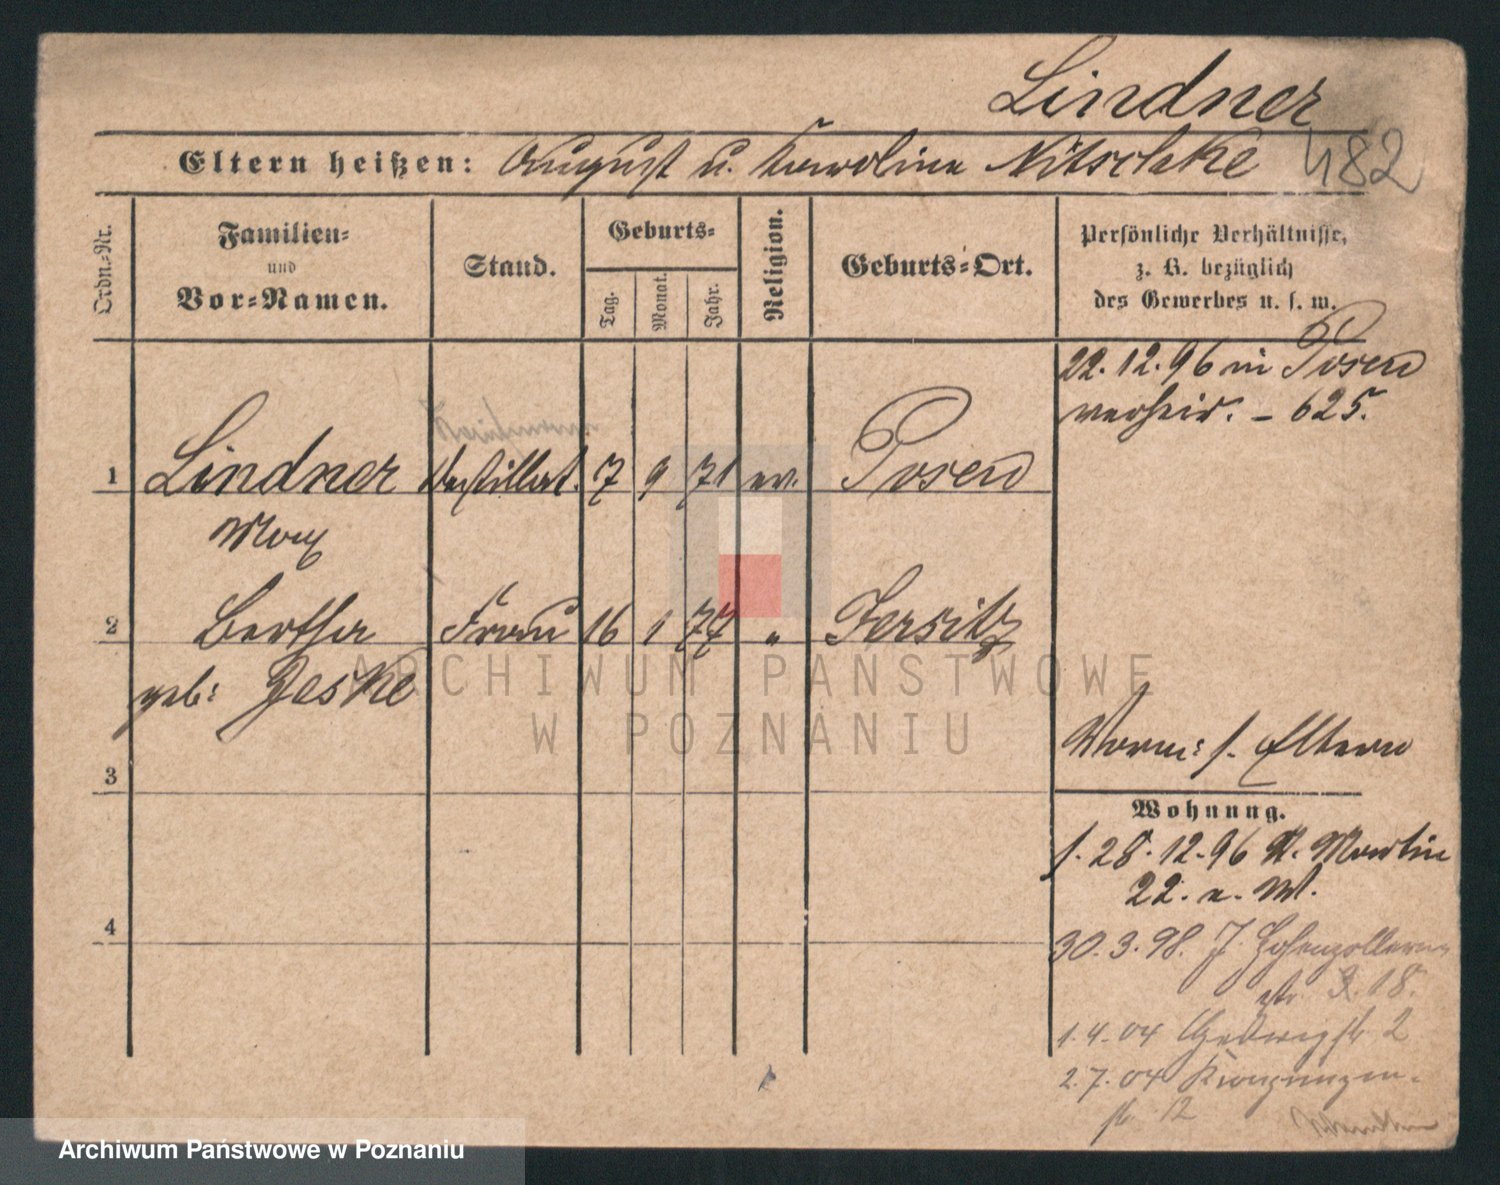 Lindner
Eltern heißen: August u. Karoline Nitschke 482
Ordn.-Nr.
Familien-
und
Vor-Namen.
Stand.
Geburts-
Tag.
Monat.
Jahr.
Religion.
Geburts-Ort.
Persönliche Verhältnisse,
z. B. bezüglich
des Gewerbes u. s. w.
22.12.96 in Posen
verheir. - 625.
1 Lindner Destillat. 7 9 71 ev. Posen
Max
2 Bertha Frau 16 1 77 " Jersitz
geb: Jeske
3
Vorm: s. Eltern
Wohnung.
s. 28.12.96 St. Martin
22. a. W.
4
30.3.98. J. Hohenzollern
str. 18.
1.4.04 Hedwigstr 2
2.7.04 Kronprinzen-
str 12
ARCHIWUM PAŃSTWOWE
W POZNANIU
Archiwum Państwowe w Poznaniu